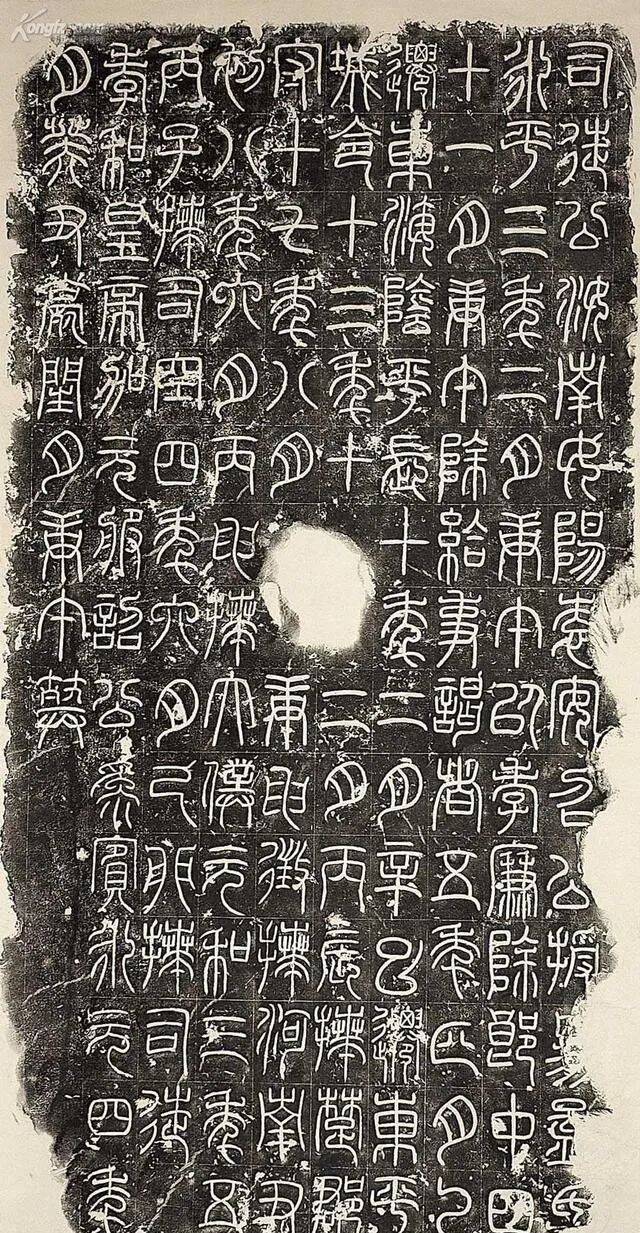 Kongfz.com
司徒公汝南女陽袁安召公授易孟氏
永平三年二月庚午以孝廉除郎中四
十一月庚午除給事謁者五年正月乙
遷東海陰平長十年二月辛巳遷東平
城令十三年十二月丙辰拜楚郡
守十七年八月庚申徵拜河南尹
初八年六月丙申拜太僕元和三年五
丙子拜司空四年六月己卯拜司徒
孝和皇帝加元服詔公爲賓永元四年
月癸丑薨閏月庚午葬